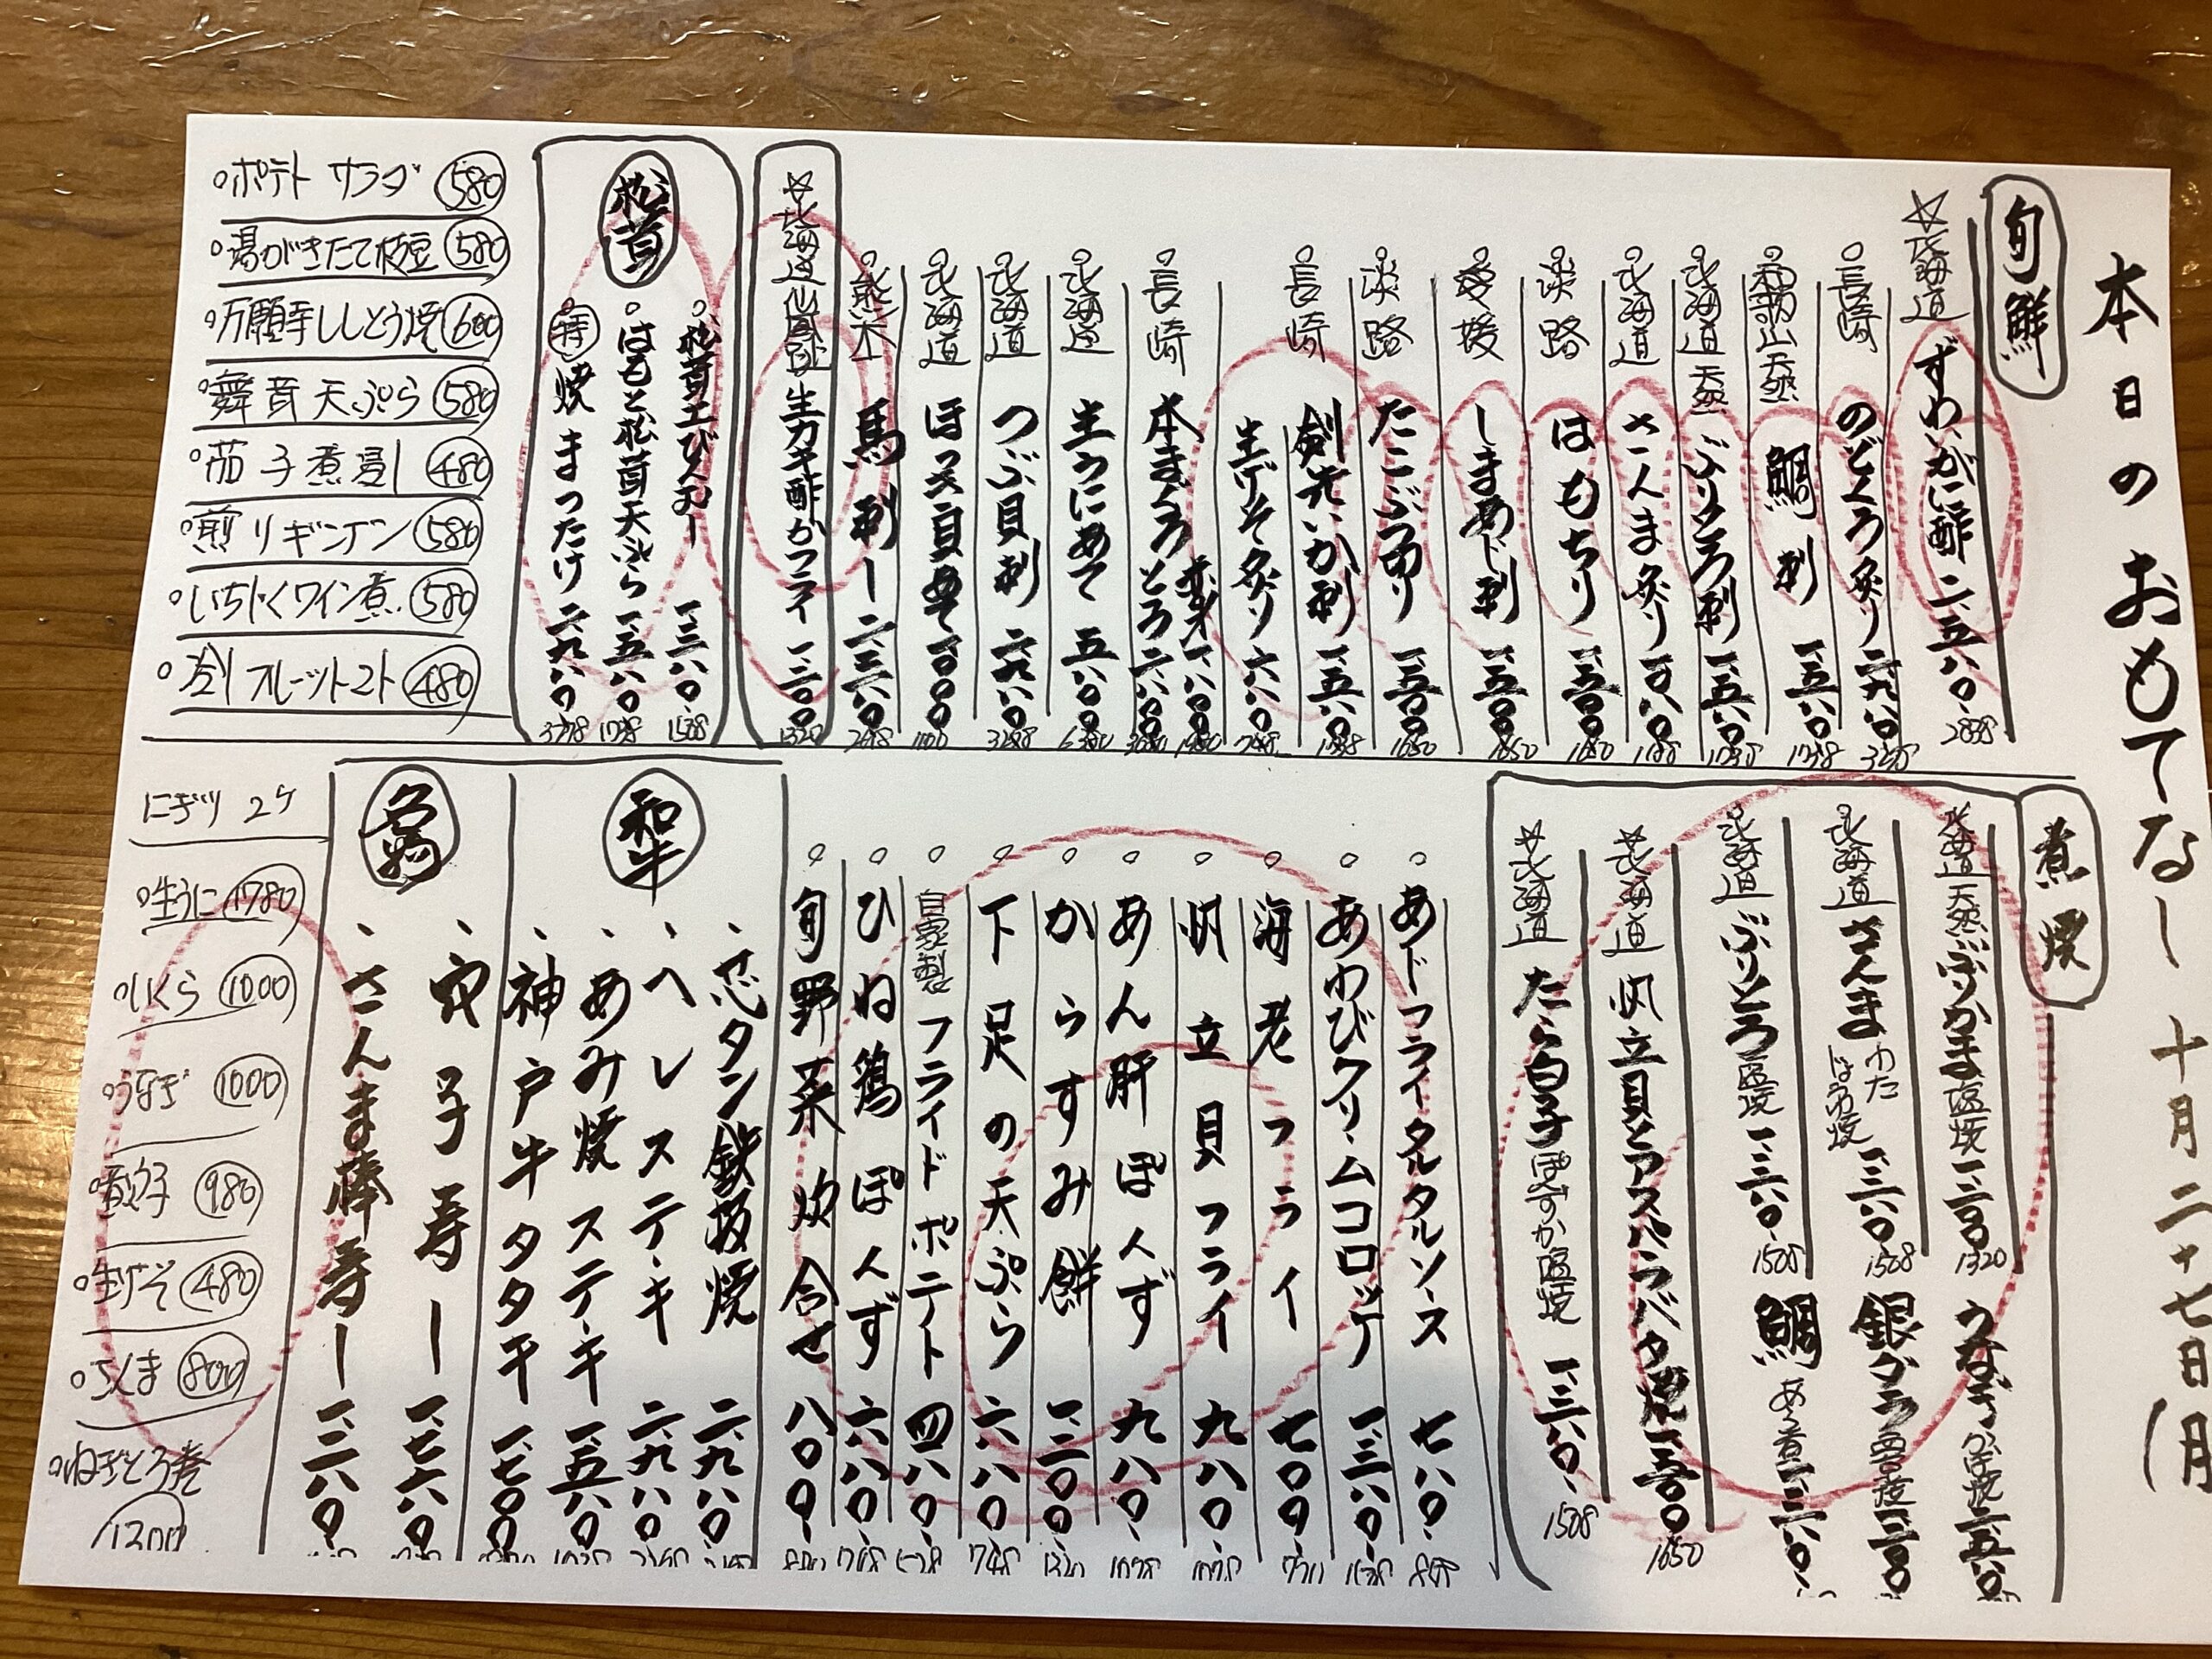 本日のおもてなし 十月二十七日(月
旬鮮
☆北海道 ずわいがに酢 二、五八〇、 2838
長崎 のどくろ炙り 二、九八〇
和歌山天然 鯛刺 一、五八〇 1738
北海道天然 ぶりとろ刺 一、五八〇 1738
北海道 さんま炙り 一、〇八〇 1188
淡路 はもちり 一、五〇〇 1650
愛媛 しまあじ刺 一、五〇〇 1650
淡路 たこぶつ切り 一、五〇〇 1650
長崎 剣先いか刺 一、五八〇 1738
生げそ炙り 六八〇 748
長崎 本まぐろ とろ 二、八〇〇 3080
赤身 一、八〇〇 1980
北海道 生うにあて 五、八〇〇 6380
北海道 つぶ貝刺 二、九八〇
北海道 ほっき貝あて 一、〇〇〇 1100
熊本 馬刺し 二、三八〇
☆北海道仙鳳趾 生カキ酢かフライ 一、二〇〇 1320
松茸
松茸土びんむし 一、三八〇
はもと松茸天ぷら 一、五八〇 1738
特 焼まつたけ 二、九八〇
ポテトサラダ 580
湯がきたて枝豆 580
万願寺ししとう焼 600
舞茸天ぷら 580
茄子煮浸し 480
煎りギンナン 580
いちじくワイン煮 580
フルーツトマト 480
煮焼
北海道天然ぶりかま塩焼 一、二〇〇 1320
うなぎかば焼 二、五八〇
北海道 さんま わたじょうゆ焼 一、三八〇 1508
銀ダラ西京焼 一、二〇〇
北海道 ぶりとろ塩焼 一、三八〇、 1508
鯛 あら煮
☆北海道 帆立貝とアスパラバター焼 一、五〇〇 1650
☆北海道 たら白子ぽんずか塩焼 一、三八〇、 1508
あじフライタルタルソース 七八〇、
あわびクリームコロッケ 一、三八〇、
海老フライ 七〇〇、
帆立貝フライ 九八〇、
あん肝ぽんず 九八〇、
からすみ餅 一、二〇〇、
下足の天ぷら 六八〇、 748
自家製フライドポテト 四八〇、
ひね鶏ぽんず 六八〇、
旬野菜炊合せ 八〇〇、
和牛
芯タン鉄板焼 二、九八〇、
ヘレステーキ 二、九八〇、
あみ焼ステーキ 一、五八〇、
神戸牛タタキ 一、七〇〇
名物
穴子寿し 一、七八〇
さんま棒寿し 一、二八〇
にぎり 2ケ
生うに 1780
いくら 1000
うなぎ 1000
数の子 980
生げそ 480
さんま 800
ねぎとろ巻 1200